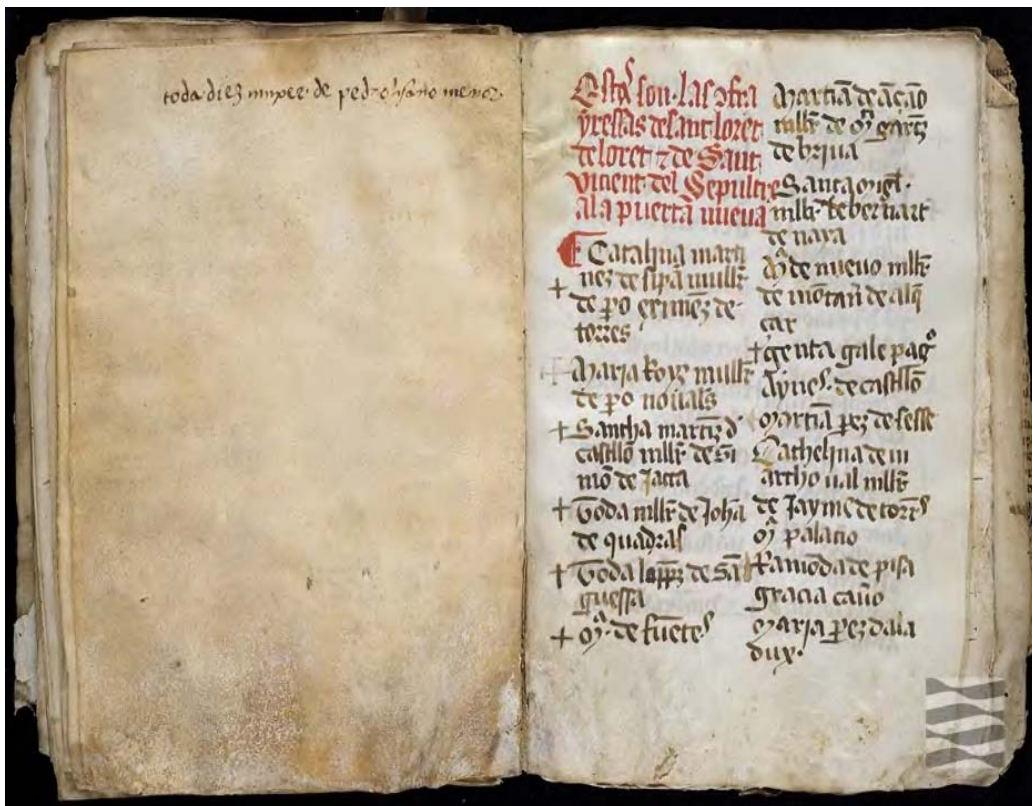 toda diez muger de pedro menor
Estas son las ofra
yressas de sant loret
de loret ⁊ de Sant
vicent del Sepulcre
ala puerta nueva
Catalina marti
nez de sipa mullr
+ de po exíméz de
torres
+ Maria Royz mullr
de po nouals
+ Sancha martíz d
castillo mllr de Si
mō de Jacca
+ Toda mllr de Johā
de quadras
+ Toda lopez de Sā
guessa
+ Mᵃ de fuētes
Martiā de
mllr de Mᵃ garcez
de
Santa
mllr de bernart
de naya
Mᵃ de nueuo mllr
de mōtan de alq̄
car
+ genta gale
Aynes de castillō
Martiā perz de sesse
Cathelina de m
mllr
de Jayme de torres
Mᵃ palacio
+ Ramōda de pisa
Gracia caño
Maria perez dala
dux